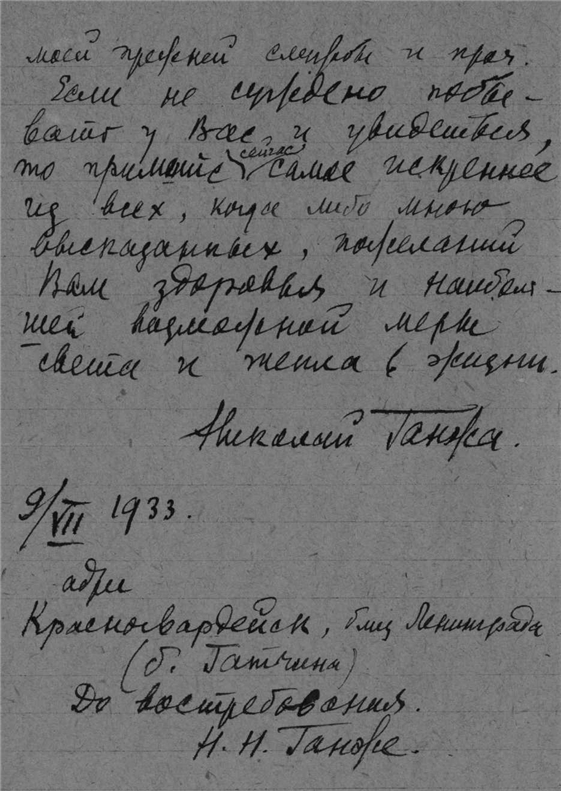 моей прежней службы и проч.
Если не суждено побы-
вать у Вас и увидеться,
то примите сейчас самое искреннее
из всех, когда либо мною
высказанных, пожеланий
Вам здоровья и наиболь-
шей возможной меры
света и тепла в жизни.
Николай Ганжа.
9/VII 1933.
адр.
Красногвардейск, близ Ленинграда
(б. Гатчина)
До востребования.
Н. Н. Ганже.